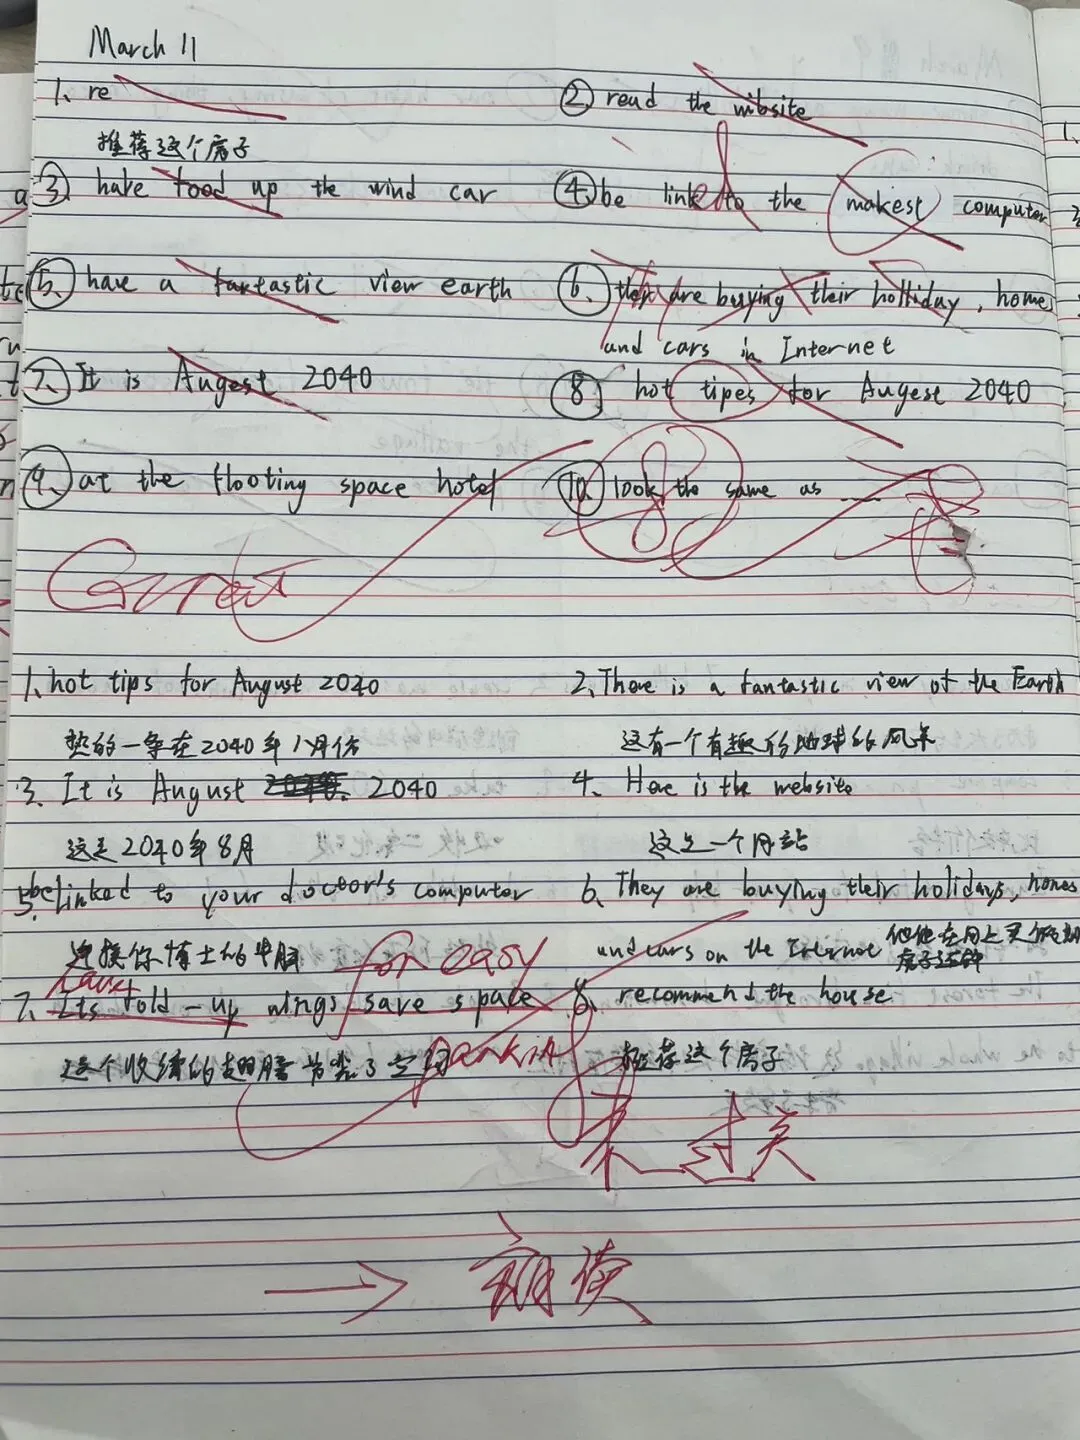 March 11
1、re
② read the wibsite
推荐这个房子
③ have food up the wind car
④ be linked to the makest computer
⑤、have a fantastic view earth
⑥、they are buying their holliday, home
and cars in Internet
⑦、It is Augest 2040
⑧、hot tipes for Augest 2040
⑨、at the flooting space hotel
⑩、look the same as
Correct
1、hot tips for August 2040
2、There is a fantastic view of the Earth
热的一条在2040年八月份
这有一个有趣的地球的风景
3、It is August 2040
4、Here is the website
这是2040年8月
这是一个网站
5、be linked to your doctor's computer
6、They are buying their holidays, homes
连接你博士的电脑
and cars on the Internet
for easy
7、Its fold-up wings save space
8、recommend the house
这个收缩的翅膀节省了空间
parking
推荐这个房子
未过关
→ 朗读